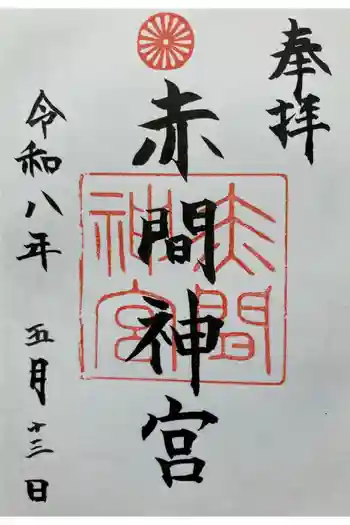 奉拝
赤間神宮
赤間神宮
令和八年 五月十三日